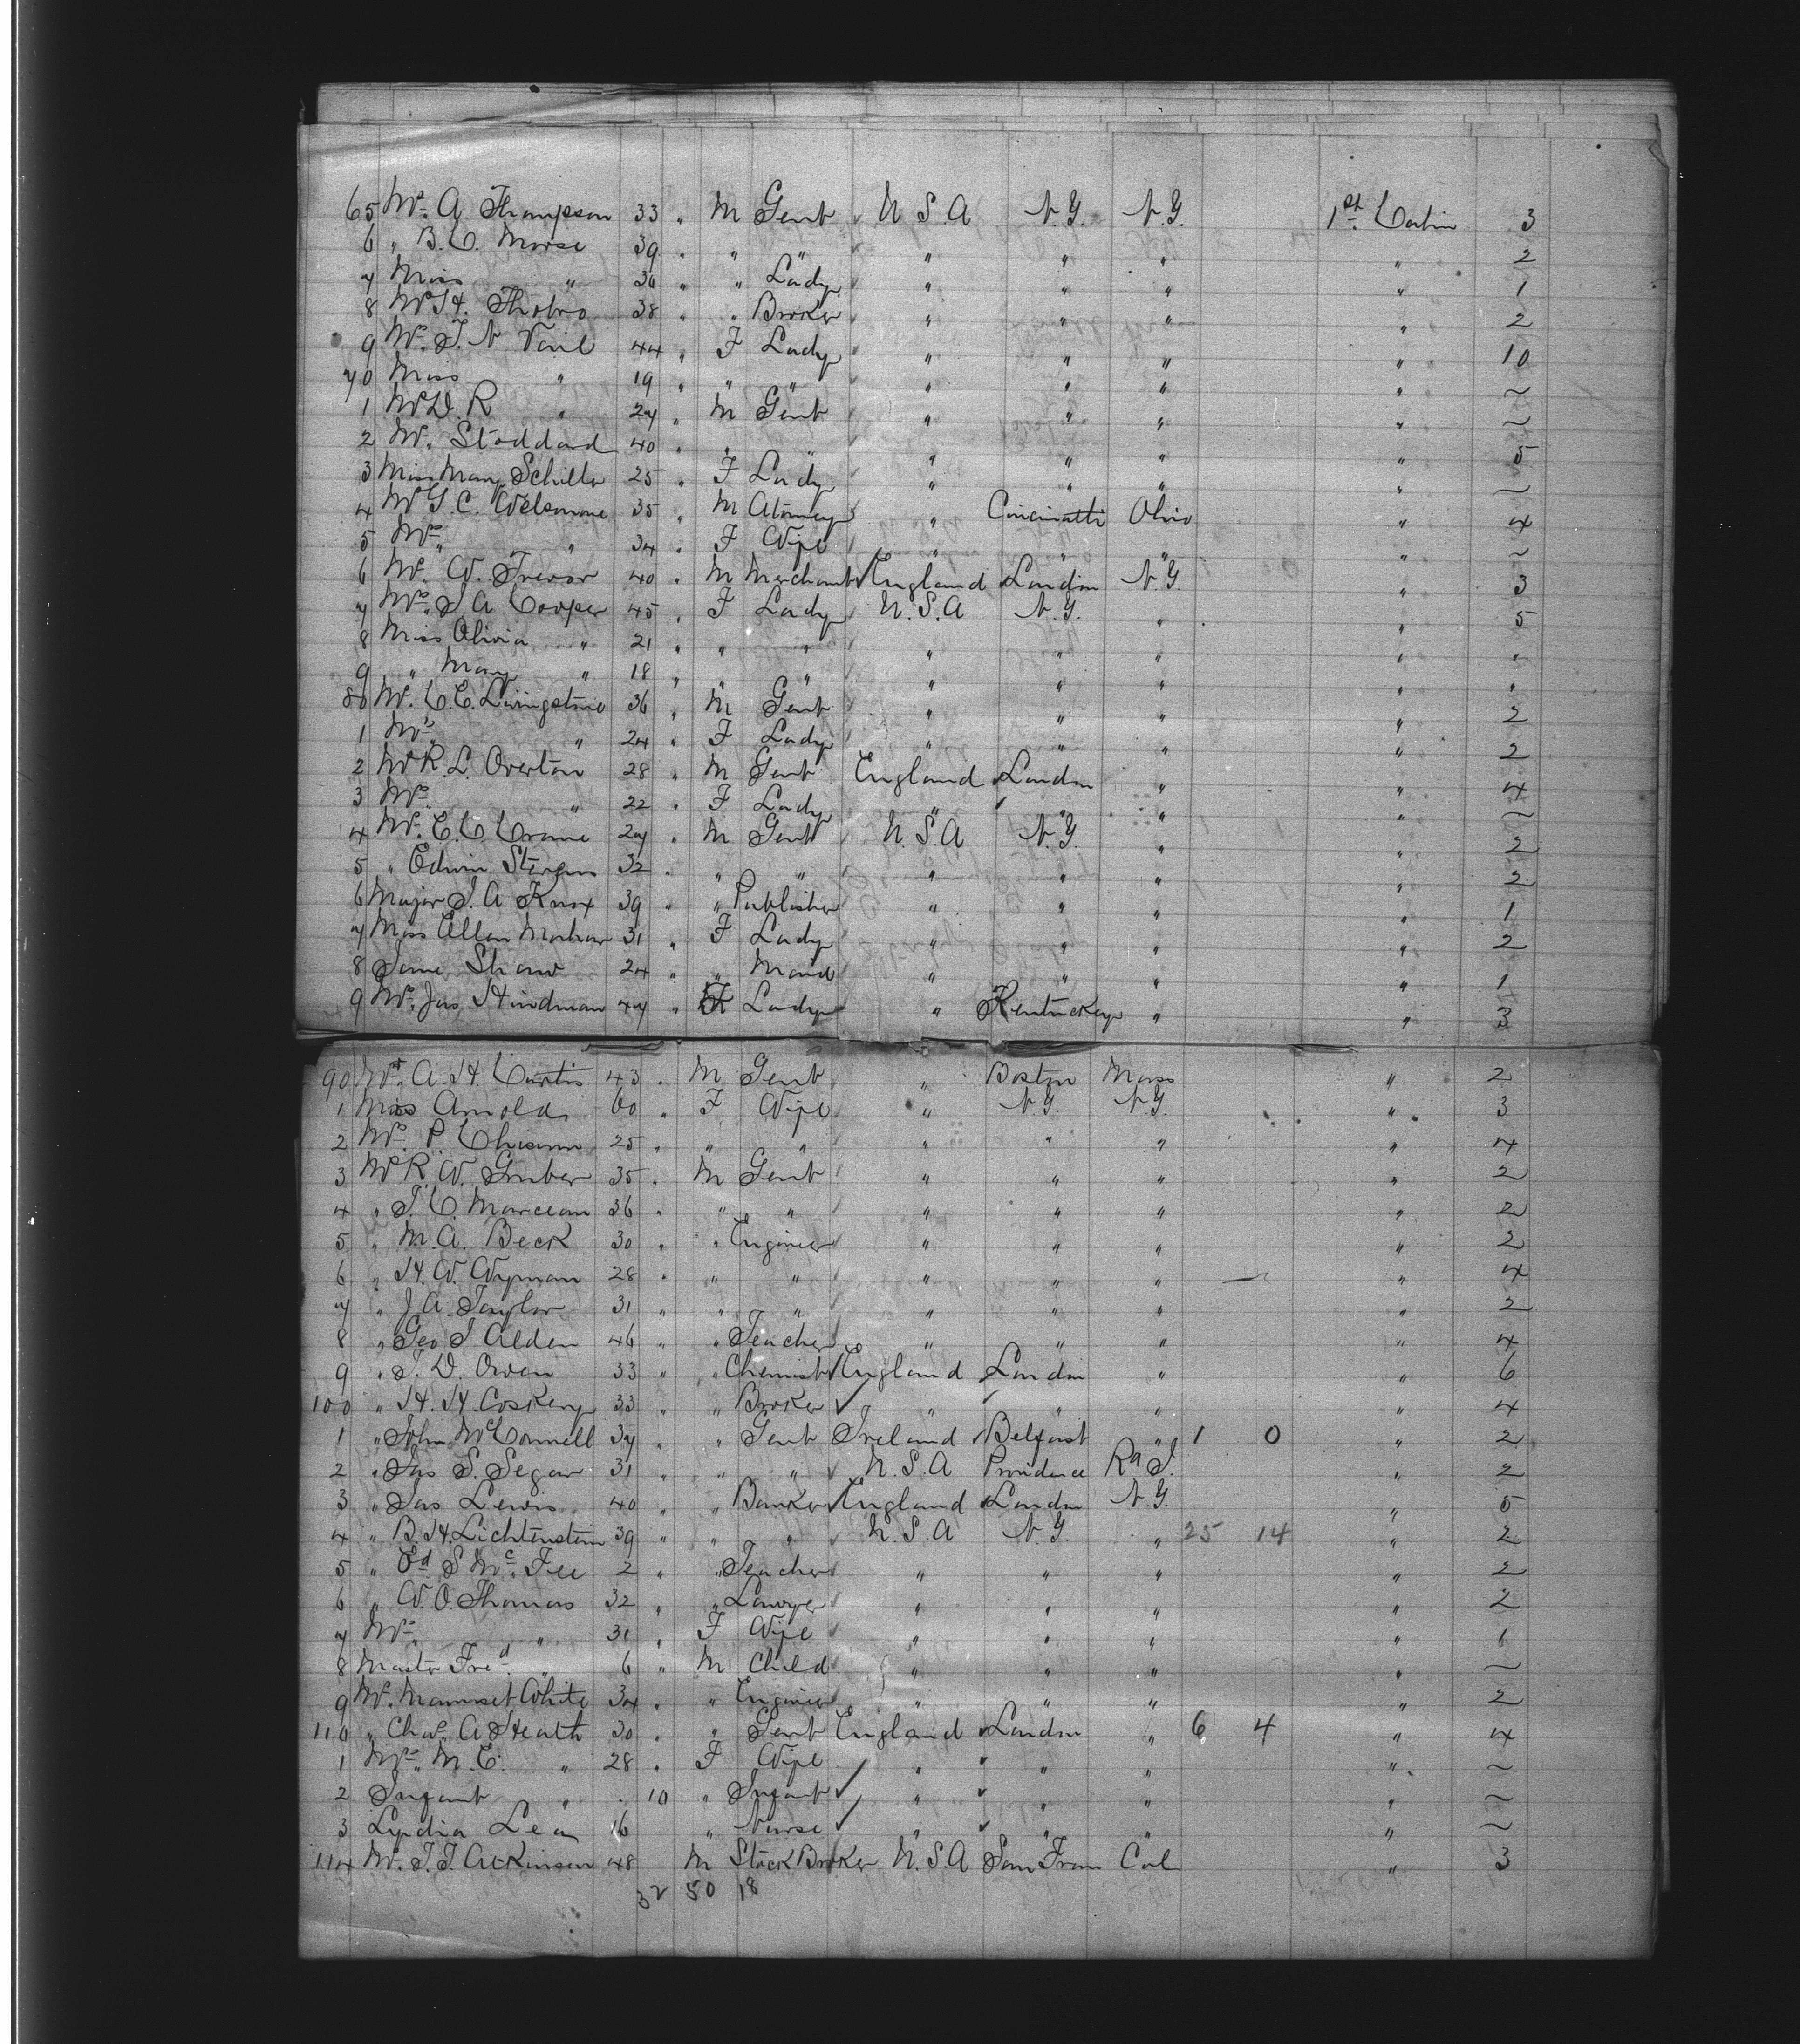 65 Mr. A. Thompson 33 " M Gent U.S.A N.Y. N.Y. 1st Cabin 3
6 " B.C. Morse 39 " " " " " " " 2
7 Miss " 30 " " Lady " " " " 1
8 Mr H. Thobro 38 " " Broker " " " " 2
9 Mrs. T. N Vail 44 " F Lady " " " " 10
70 Miss " 19 " " " " " " " ~
1 Mr D. R " 27 " M Gent " " " " ~
2 Mr. Stoddard 40 " " " " " " " 5
3 Miss Mary Schiller 25 " F Lady " " " " ~
4 Mr G. C. 35 " M Attorney " Cincinatti Ohio " 4
5 Mrs " 34 " F Wife " " " " ~
6 Mr. W. Trevor 40 " M Merchant England London N.Y. " 3
7 Mrs. J A Cooper 45 " F Lady U.S.A N.Y. " " 5
8 Miss Olivia " 21 " " " " " " " "
9 " Mary " 18 " " " " " " " "
80 Mr. C.C. Livingstone 36 " M Gent " " " " 2
1 Mrs. " 24 " F Lady " " " " 2
2 Mr R. L. Overton 28 " M Gent England London " " 4
3 Mrs. " 22 " F Lady " " " " ~
4 Mr. C.C. Crane 27 " M Gent U.S.A N.Y. " " 2
5 " Edwin 32 " " " " " " " 2
6 Major J. A Knox 39 " " Publisher " " " " 1
7 Miss Ellen 31 " F Lady " " " " 2
8 Jane Shaw 24 " " Maid " " " " 1
9 Mrs. Jas Hindman 47 " F Lady " Kentucky " " 3
90 Mr. A. H. Curtis 43 " M Gent " Boston Mass " 2
1 Miss Arnold 60 " F Wife " N.Y. N.Y. " 3
2 Mrs. P. Chisum 25 " " " " " " " 4
3 Mr R. W. Gruber 35 " M Gent " " " " 2
4 " T. C. Marceau 36 " " " " " " " 2
5 " M. A. Beck 30 " " Engineer " " " " 2
6 " H. W. Wyman 28 " " " " " " " 4
7 " J A. Taylor 31 " " " " " " " 2
8 " Geo I Alden 46 " " Teacher " " " " 4
9 " T. D. Owen 33 " " Chemist England London " " 6
100 " H. H. Coskery 33 " " Broker " " " " 4
1 " John McConnell 37 " " Gent Ireland Belfast " 1 0 " 2
2 " Jas S. Segar 31 " " " U.S.A Providence Rd I. " 2
3 " Jas Lewis 40 " " Banker England London N.Y. " 5
4 " B. H. Lichtenstein 39 " " " U.S.A N.Y. " 25 14 " 2
5 " Ed S McFee 2 " " Teacher " " " " 2
6 " W. O. Thomas 32 " " Lawyer " " " " 2
7 Mrs. " 31 " F Wife " " " " 1
8 Master Fred. " 6 " M Child " " " " ~
9 Mr. Mansel White 34 " " Engineer " " " " 2
110 " Chas. A Heath 30 " " Gent England London " 6 4 " 4
1 Mrs. M. E. " 28 " F Wife " " " " ~
2 Infant " . 10 " Infant " " " " ~
3 Lydia Lea 16 " Nurse " " " " ~
114 Mr. T. T. Atkinson 48 M Stock Broker U.S.A San Fran Cal " 3
32 50 18